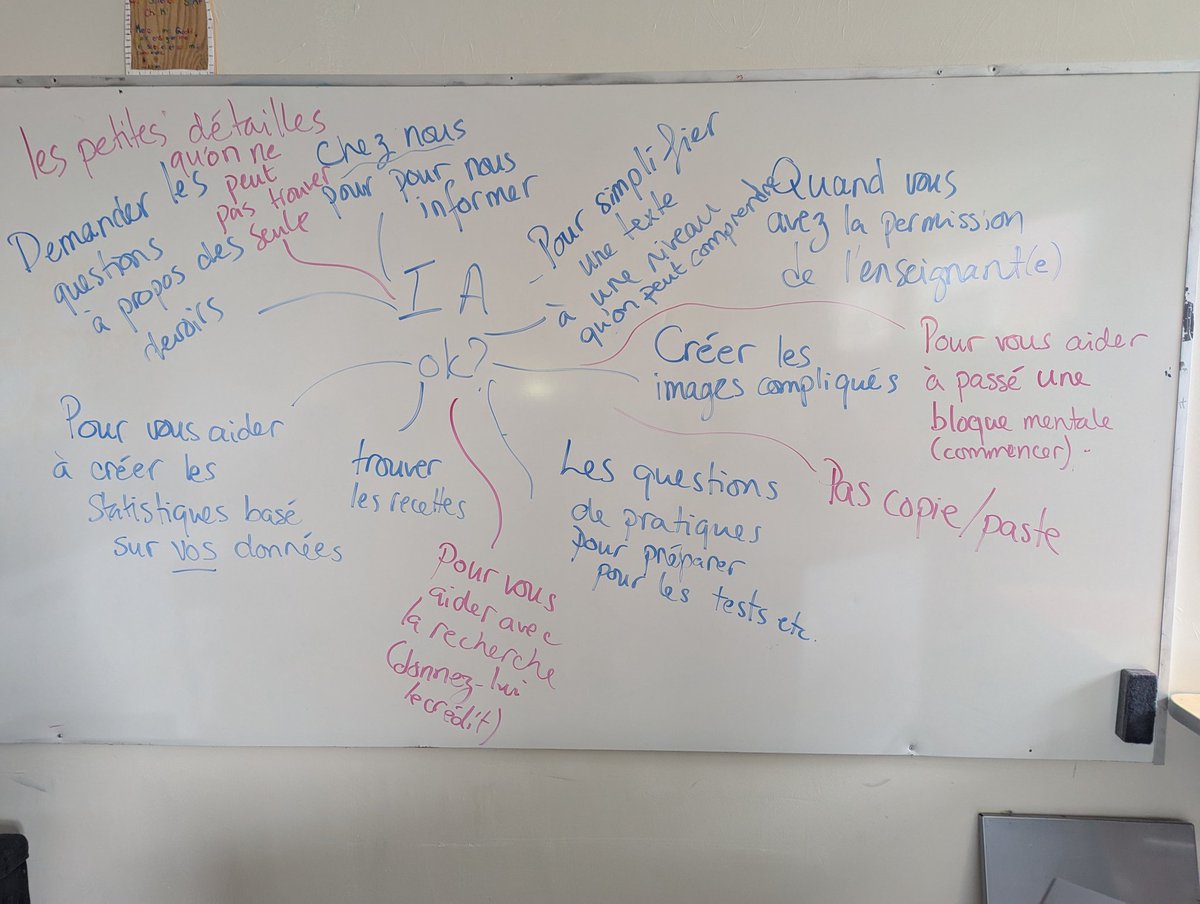 les petites détailles
qu'on ne
peut
pas trouver
seule
Chez nous
pour pour nous
informer
- Pour simplifier
une texte
à une niveau
qu'on peut comprendre
Quand vous
avez la permission
de l'enseignant(e)
Demander les
questions
à propos des
devoirs
IA
ok?
Créer les
images compliqués
Pour vous aider
à passé une
bloque mentale
(commencer).
Pour vous aider
à créer les
statistiques basé
sur vos données
trouver
les recettes
Les questions
de pratiques
pour préparer
pour les tests etc.
Pas copie/paste
Pour vous
aider avec
la recherche
(donnez-lui
le crédit)